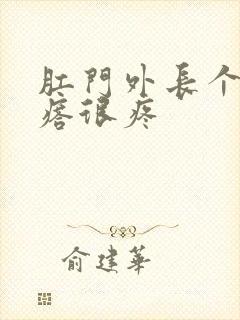 肛門外長个
瘩很疼
俞建華